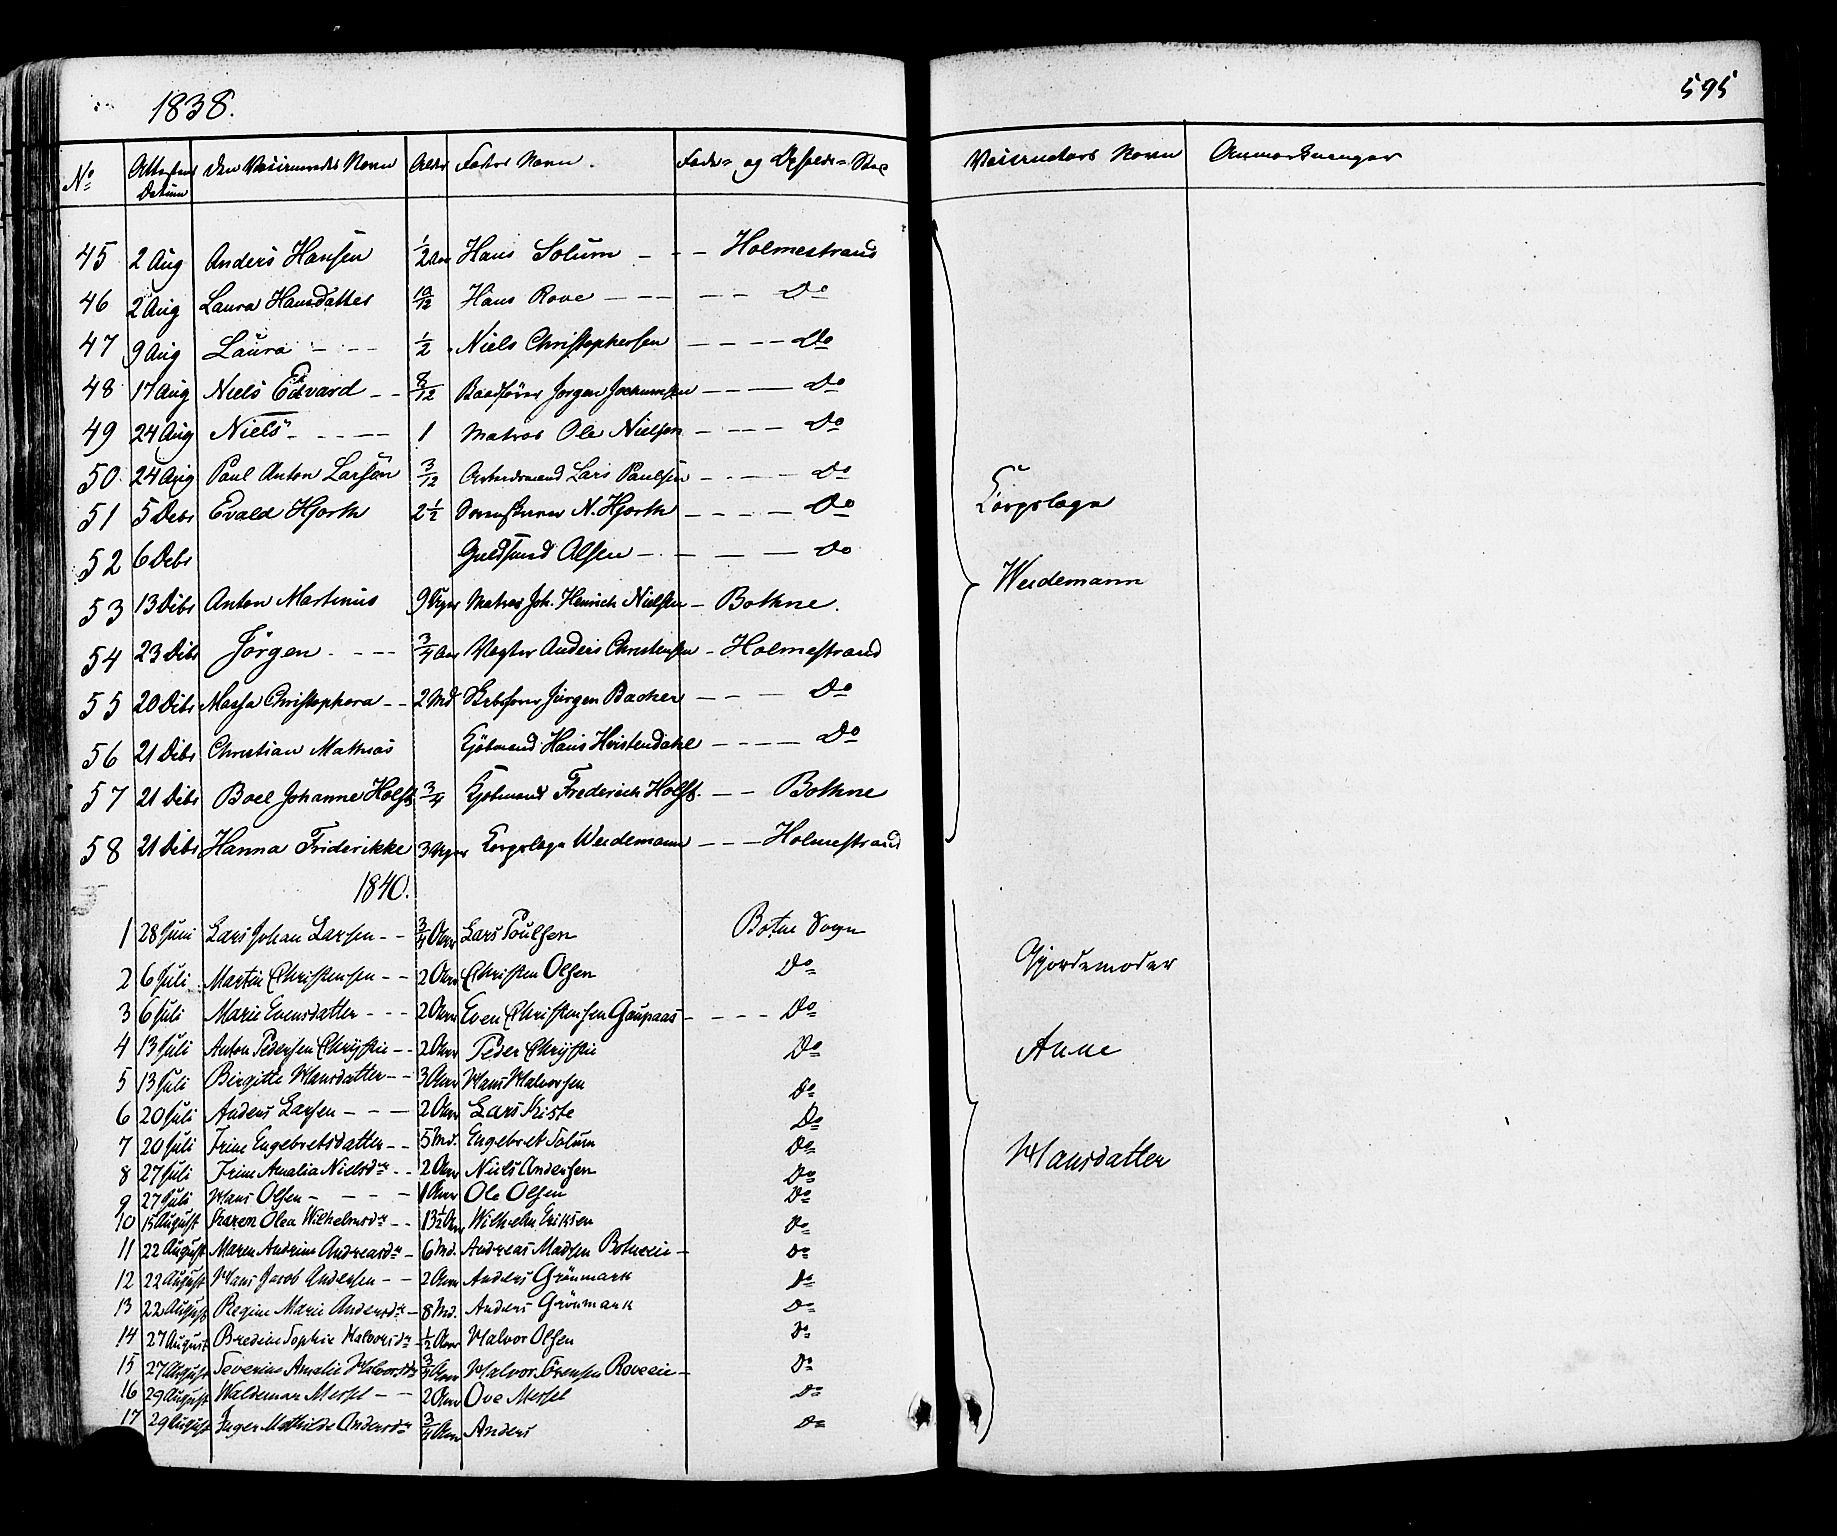 1838.
595
No Attestens Datum Den Vaccineredes Navn Alder Faders Navn. Føde- og Opholds-Sted Vaccinators Navn Anmærkninger
45 2 Aug Anders Hansen 1/2 Aar Hans Solum - - - Holmestrand
46 2 Aug Laura Hansdatter 10/12 Hans Rove - - - - - Do
47 9 Aug Laura - - - 1/2 Niels Christophersen - - - - Do
48 17 Aug Niels Edvard - - 8/12 Baadfører Jørgen Jochumsen - - - Do
49 24 Aug Niels - - - - 1 Matros Ole Nielsen - - - Do
50 24 Aug Paul Anton Larsen 3/12 Arbeidsmand Lars Paulsen - - - Do
51 5 Debr Evald Hjorth 2 1/2 N. Hjorth - - - - Do
Corpslæge
52 6 Debr Guldsmed Olsen - - - - Do
Weidemann
53 13 Debr Anton Martinus 9 Uger Matros Joh. Henrich Nielsen - Bothne.
54 23 Debr Jørgen - - - - 3/4 Aar Vægter Anders Christensen - Holmestrand
55 20 Debr Massa Christophara - - 2 Md Skibsfører Jürgen Backer - - - Do
56 21 Debr Christian Mathias Kjøbmand Hans Hvistendahl - - - - Do
57 21 Debr Boel Johanne Holst 3/4 Kjøbmand Frederich Holst - - Bothne
58 21 Debr Hanna Friderikke 3 Uger Corpslæge Weidemann - - - Holmestrand
1840.
1 28 Juni Lars Johan Larsen - - 3/4 Aar Lars Poulsen Botne Sogn
2 6 Juli Martin Christensen - - 2 Aar Christen Olsen Do
Gjordemoder
3 6 Juli Marie Evensdatter - - - 2 Aar Even Christensen Gaupaas - - - - Do
4 13 Juli Anton Pedersen Chrystie - - 2 Aar Peder Chrystie Do
Anne
5 13 Juli Birgitte Hansdatter - - 3 Aar Hans Halvorsen Do
6 20 Juli Anders Larsen - - - 2 Aar Lars Kiste Do
7 20 Juli Trine Engebretsdatter - - 5 Md. Engebret Solum Do
Hansdatter
8 27 Juli Trine Amalia Nielsdr - - 2 Aar Niels Andersen Do
9 27 Juli Hans Olsen - - - - 1 Aar Ole Olsen Do
10 15 August Karen Olea Wilhelmsdr - - 1 3 1/2 Aar Wilhelm Eriksen Do
11 22 August Maren Andrine Andreasdr - 6 Md. Andreas Madsen Botneeie - Do
12 22 August Hans Jacob Andersen - - 2 Aar Anders Grönmark Do
13 22 August Regine Marie Andersdr - 8 Md. Anders Grönmark Do
14 27 August Bredine Sophie Halvorsdr - 1/2 Aar Halvor Olsen Do
15 27 August Severine Amalie Halvorsdr 3/4 Aar Halvor Sörensen Roveeie - Do
16 29 August Waldemar Mersel - - 2 Aar Ove Mersel Do
17 29 August Inger Mathilde Andersdr 3/4 Aar Anders Do